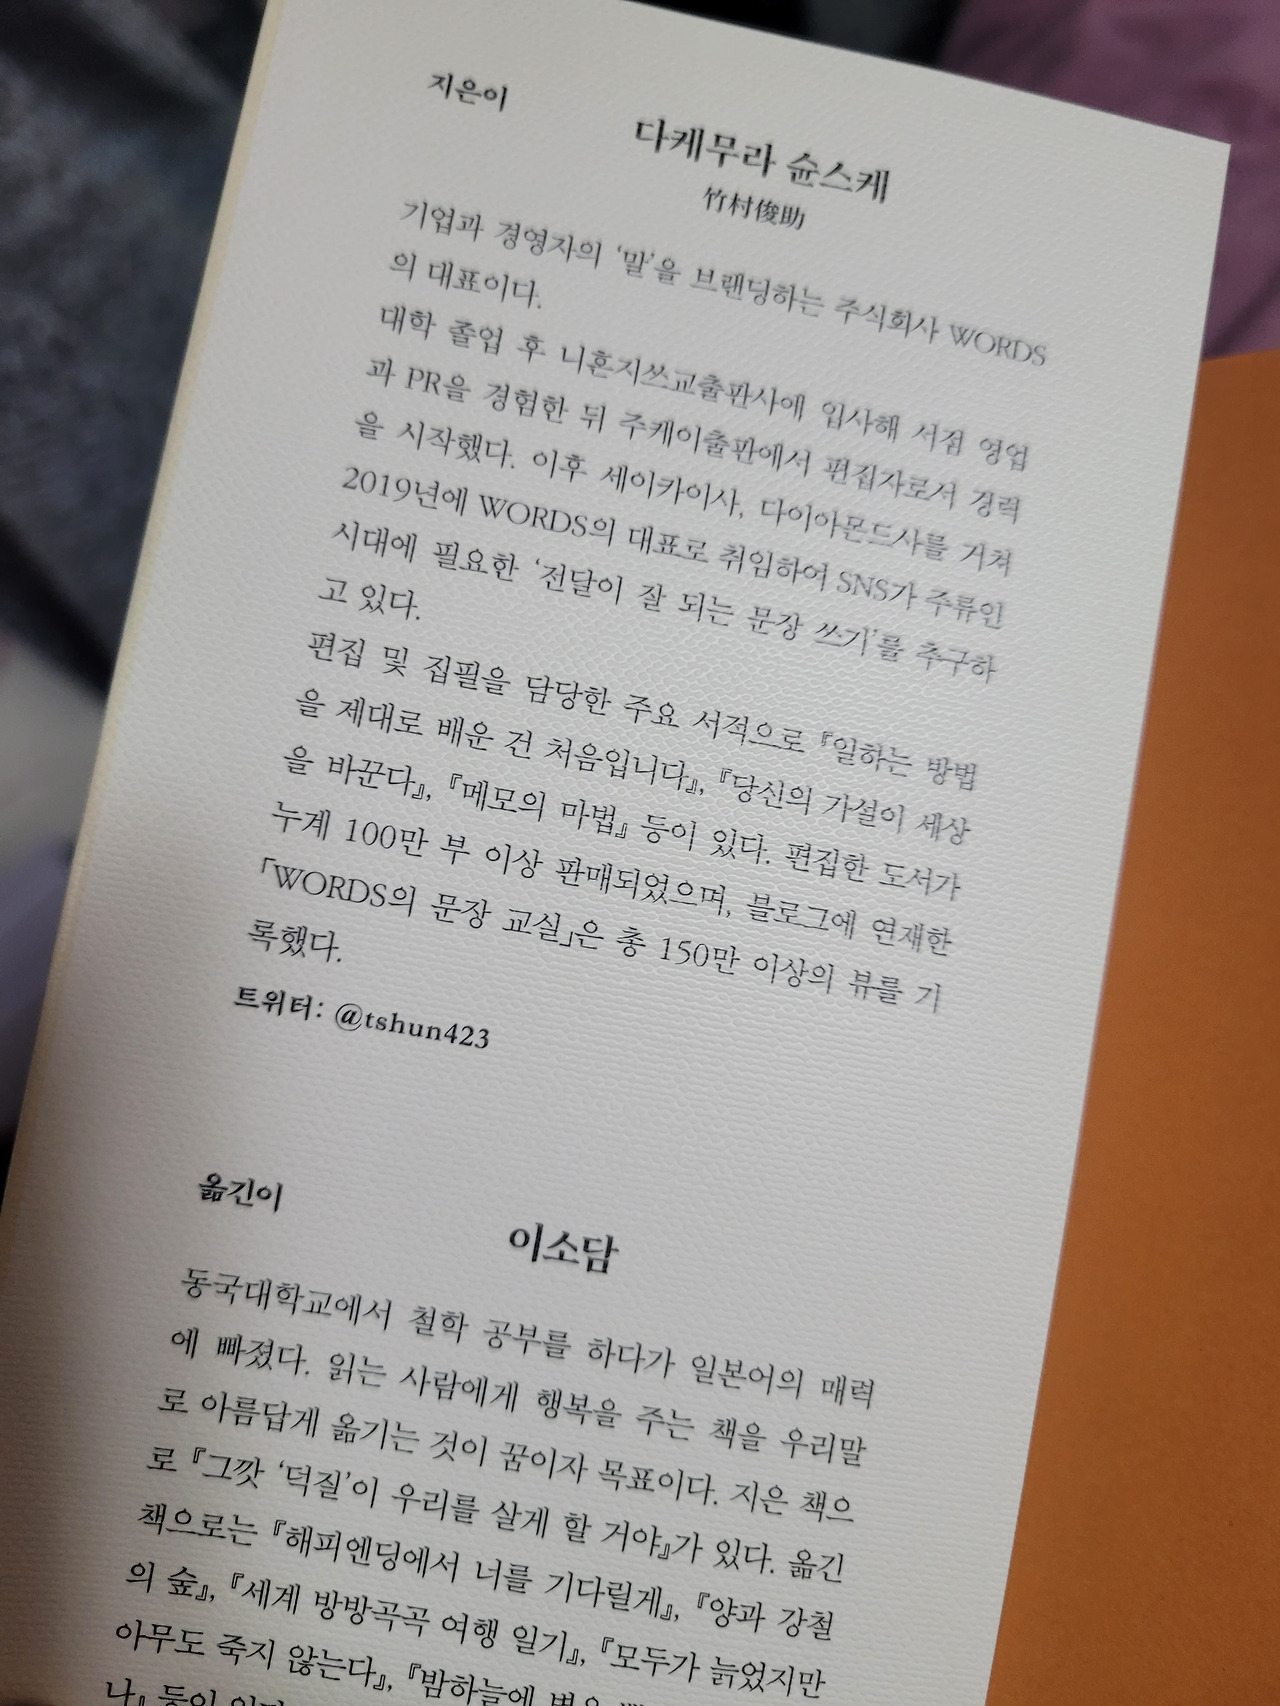 지은이
다케무라 슌스케
竹村俊助
기업과 경영자의 ‘말’을 브랜딩하는 주식회사 WORDS
의 대표이다.
대학 졸업 후 니혼지쓰교출판사에 입사해 서점 영업
과 PR을 경험한 뒤 주케이출판에서 편집자로서 경력
을 시작했다. 이후 세이카이사, 다이아몬드사를 거쳐
2019년에 WORDS의 대표로 취임하여 SNS가 주류인
시대에 필요한 ‘전달이 잘 되는 문장 쓰기’를 추구하
고 있다.
편집 및 집필을 담당한 주요 서적으로 『일하는 방법
을 제대로 배운 건 처음입니다』, 『당신의 가설이 세상
을 바꾼다』, 『메모의 마법』 등이 있다. 편집한 도서가
누계 100만 부 이상 판매되었으며, 블로그에 연재한
「WORDS의 문장 교실」은 총 150만 이상의 뷰를 기
록했다.
트위터: @tshun423
옮긴이
이소담
동국대학교에서 철학 공부를 하다가 일본어의 매력
에 빠졌다. 읽는 사람에게 행복을 주는 책을 우리말
로 아름답게 옮기는 것이 꿈이자 목표이다. 지은 책으
로 『그깟 ‘덕질’이 우리를 살게 할 거야』가 있다. 옮긴
책으로는 『해피엔딩에서 너를 기다릴게』, 『양과 강철
의 숲』, 『세계 방방곡곡 여행 일기』, 『모두가 늙었지만
아무도 죽지 않는다』, 『밤하늘에 별을
나』 등이